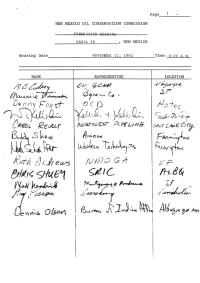 Page 1
NEW MEXICO OIL CONSERVATION COMMISSION
COMMISSION HEARING
SANTA FE, NEW MEXICO
Hearing Date NOVEMBER 12, 1992 Time: 9:00 A.M.
NAME REPRESENTING LOCATION
Maurice Trimmer Byram Co. SF
Denny Foust OCD Aztec
W Kellahin Kellahin & Kellahin Santa Fe
NORTHWEST PIPELINE SALT LAKE CITY
Buddy Shaw Amoco Farmington
Western Technologies Farmington
RUTH ANDREWS NMOGA SF
CHRIS SHUEY SRIC ALBQ
Montgomery & Andrews SF
Dennis Olson Bureau of Indian Affairs Albuquerque